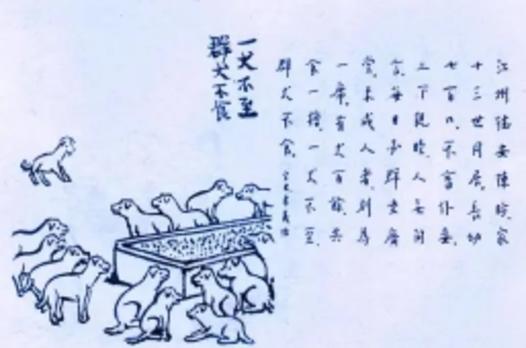 江州德安陳昉家
十三世同居,長幼
七百口。不畜仆妾,
上下親睦,人無間
言。每日必群坐廣
堂,未成人者別為
一席。有犬百餘,共
食一槽,一犬不至,
群犬不食。
一犬不至
群犬不食